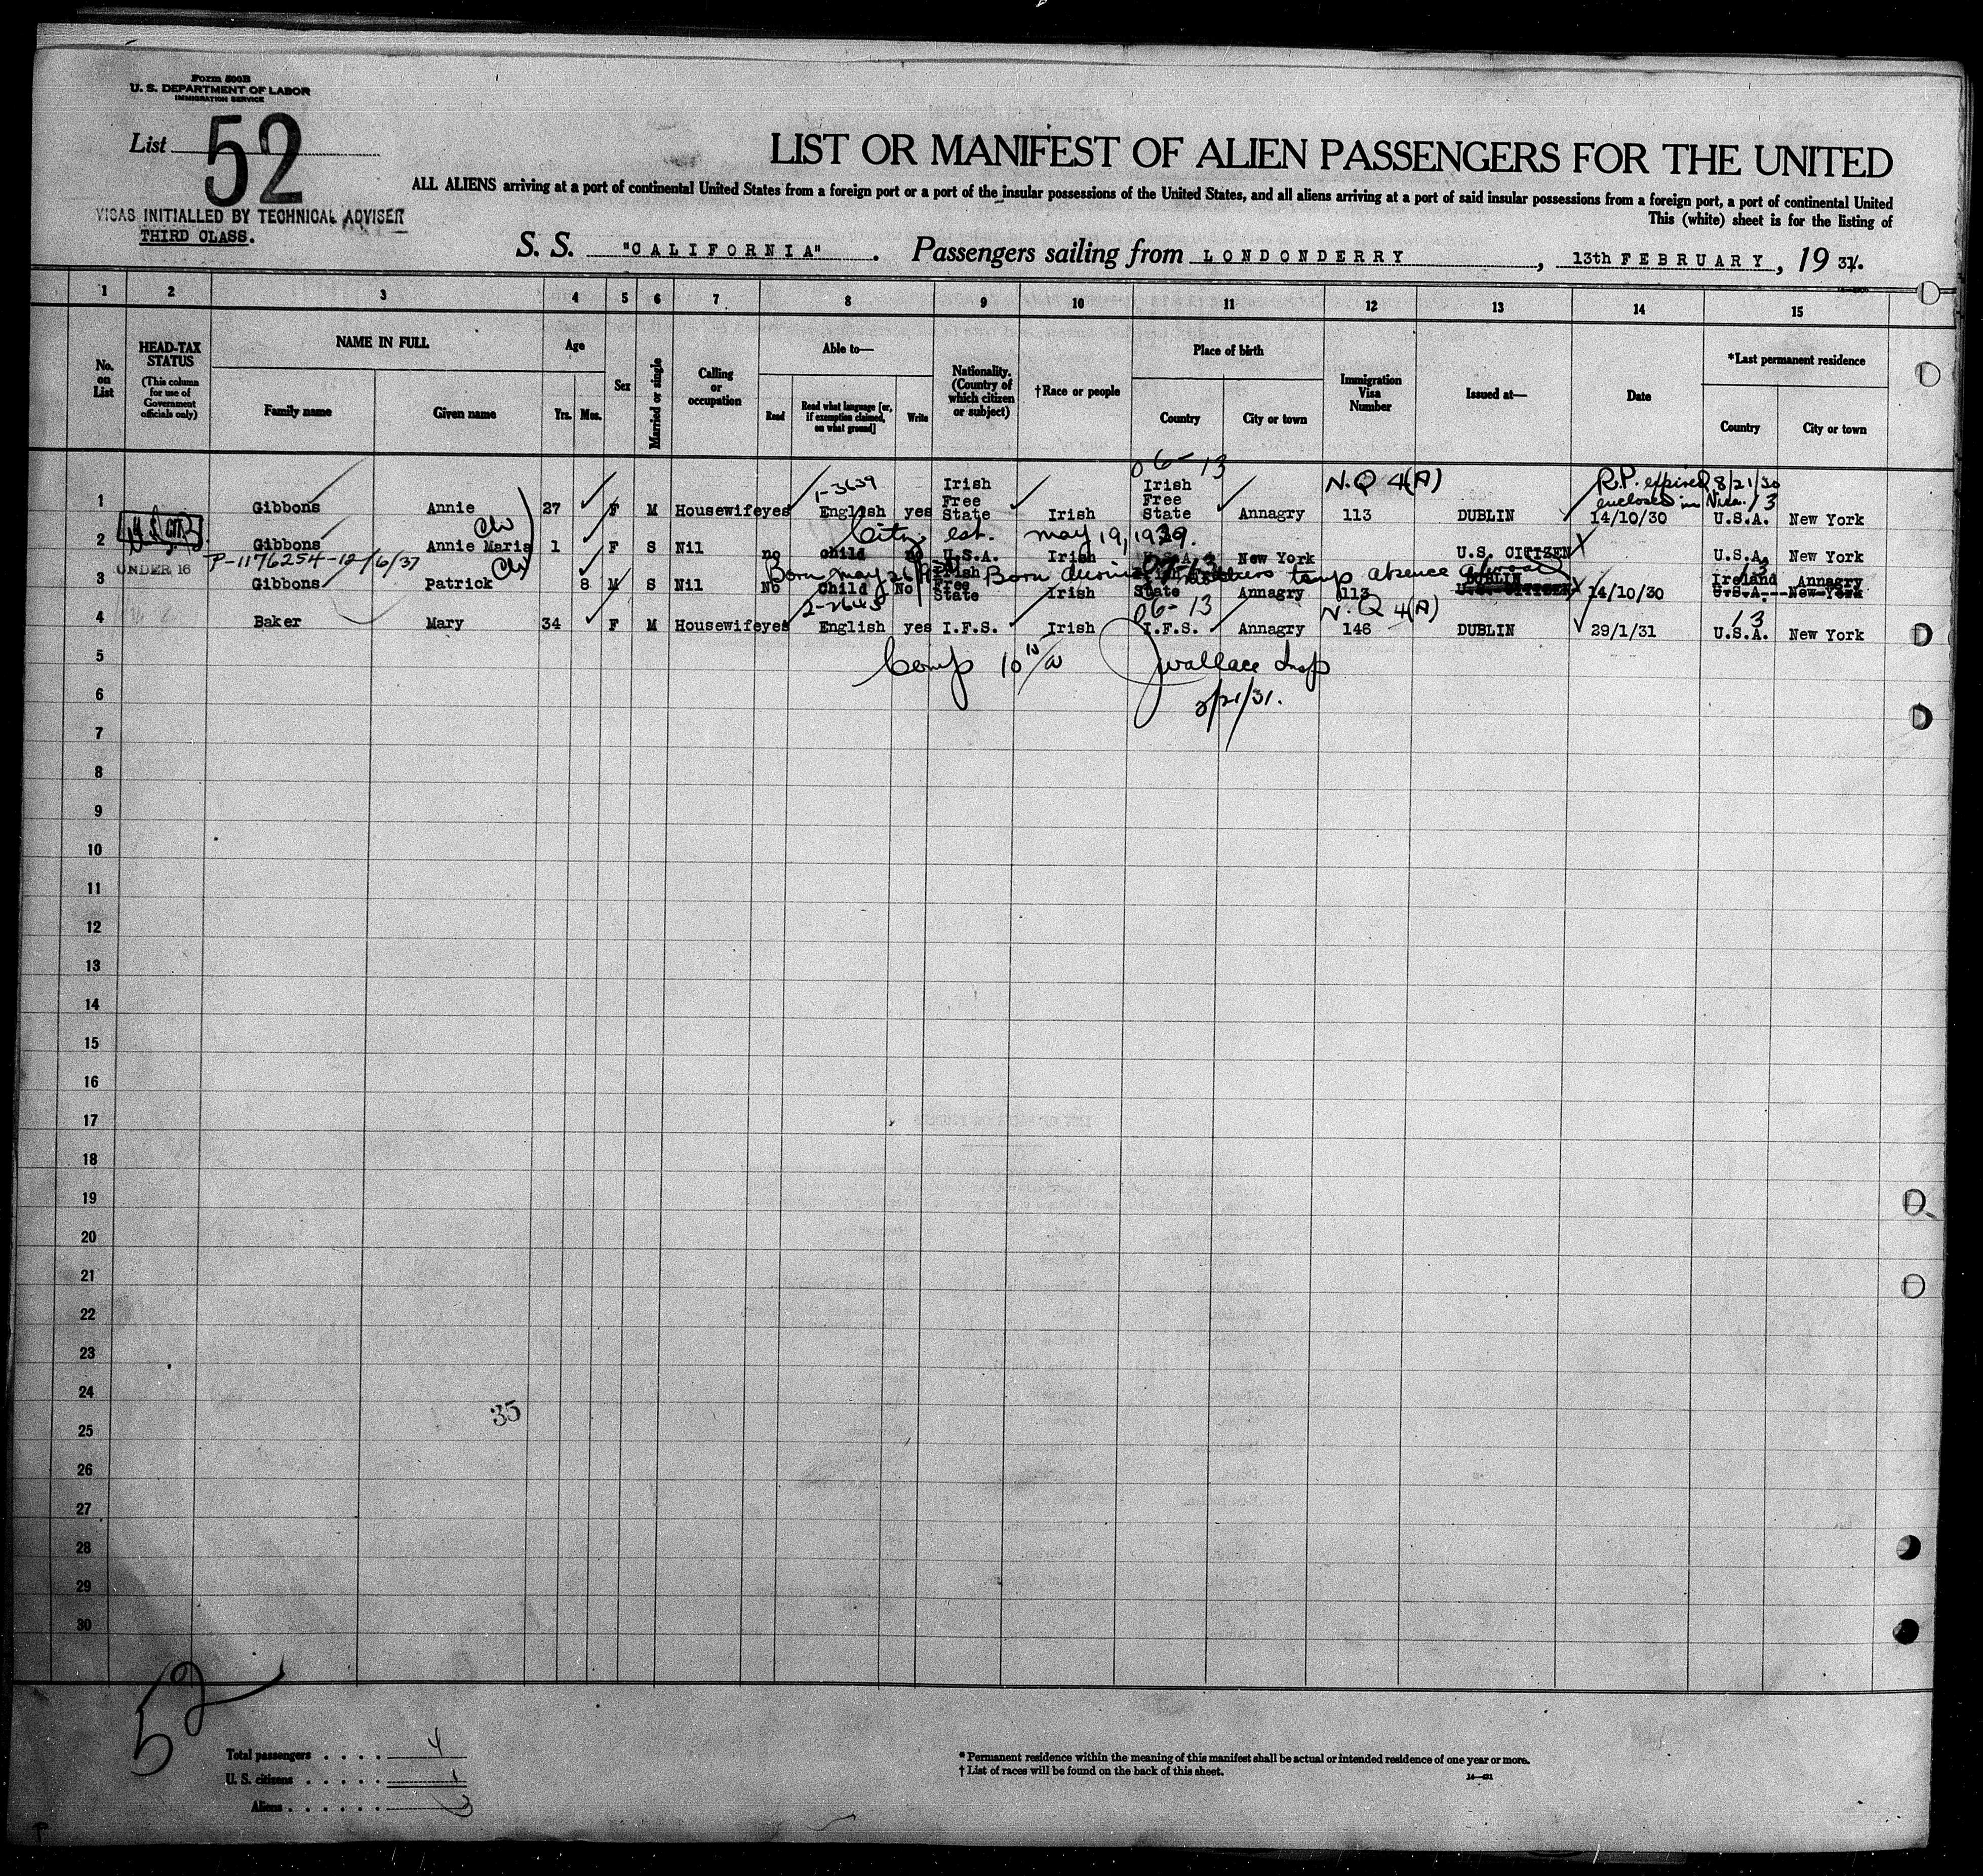 Form 500B
U. S. DEPARTMENT OF LABOR
IMMIGRATION SERVICE
List 52
VISAS INITIALLED BY TECHNICAL ADVISER
THIRD CLASS.
LIST OR MANIFEST OF ALIEN PASSENGERS FOR THE UNITED
ALL ALIENS arriving at a port of continental United States from a foreign port or a port of the insular possessions of the United States, and all aliens arriving at a port of said insular possessions from a foreign port, a port of continental United
This (white) sheet is for the listing of
S. S. "CALIFORNIA". Passengers sailing from LONDONDERRY, 13th FEBRUARY, 1931.
1 2 3 4 5 6 7 8 9 10 11 12 13 14 15
No. on List
HEAD-TAX STATUS
(This column for use of Government officials only)
NAME IN FULL
Family name Given name
Age
Yrs. Mos.
Sex
Married or single
Calling or occupation
Able to—
Read
Read what language [or, if exemption claimed, on what ground]
Write
Nationality. (Country of which citizen or subject)
†Race or people
Place of birth
Country City or town
Immigration Visa Number
Issued at—
Date
*Last permanent residence
Country City or town
06-13
1-3639 N.Q 4(A) R.P. expired 8/21/30
enclosed in 13
1 Gibbons Annie 27 F M Housewife yes English yes Irish Free State Irish Irish Free State Annagry 113 DUBLIN 14/10/30 U.S.A. New York
Citz est. may 19, 1929.
2 Gibbons Annie Maria 1 F S Nil no child no U.S.A. Irish U.S.A. New York U.S. CITIZEN U.S.A. New York
P-1176254-12/6/37
UNDER 16
Born may 26 Born during mothers temp absence abroad 13
3 Gibbons Patrick 8 M S Nil No Child No Irish Free State Irish State Annagry 113 DUBLIN U.S. CITIZEN 14/10/30 Ireland Annagry
U.S.A. New York
2-2643 06-13 N.Q 4(A) 13
4 Baker Mary 34 F M Housewife yes English yes I.F.S. Irish I.F.S. Annagry 146 DUBLIN 29/1/31 U.S.A. New York
5 Comp 10 Wallace Insp
6 2/21/31.
7
8
9
10
11
12
13
14
15
16
17
18
19
20
21
22
23
24
35
25
26
27
28
29
30
52
Total passengers . . . . 4
U. S. citizens . . . . . 1
Aliens . . . . . . 3
* Permanent residence within the meaning of this manifest shall be actual or intended residence of one year or more.
† List of races will be found on the back of this sheet.